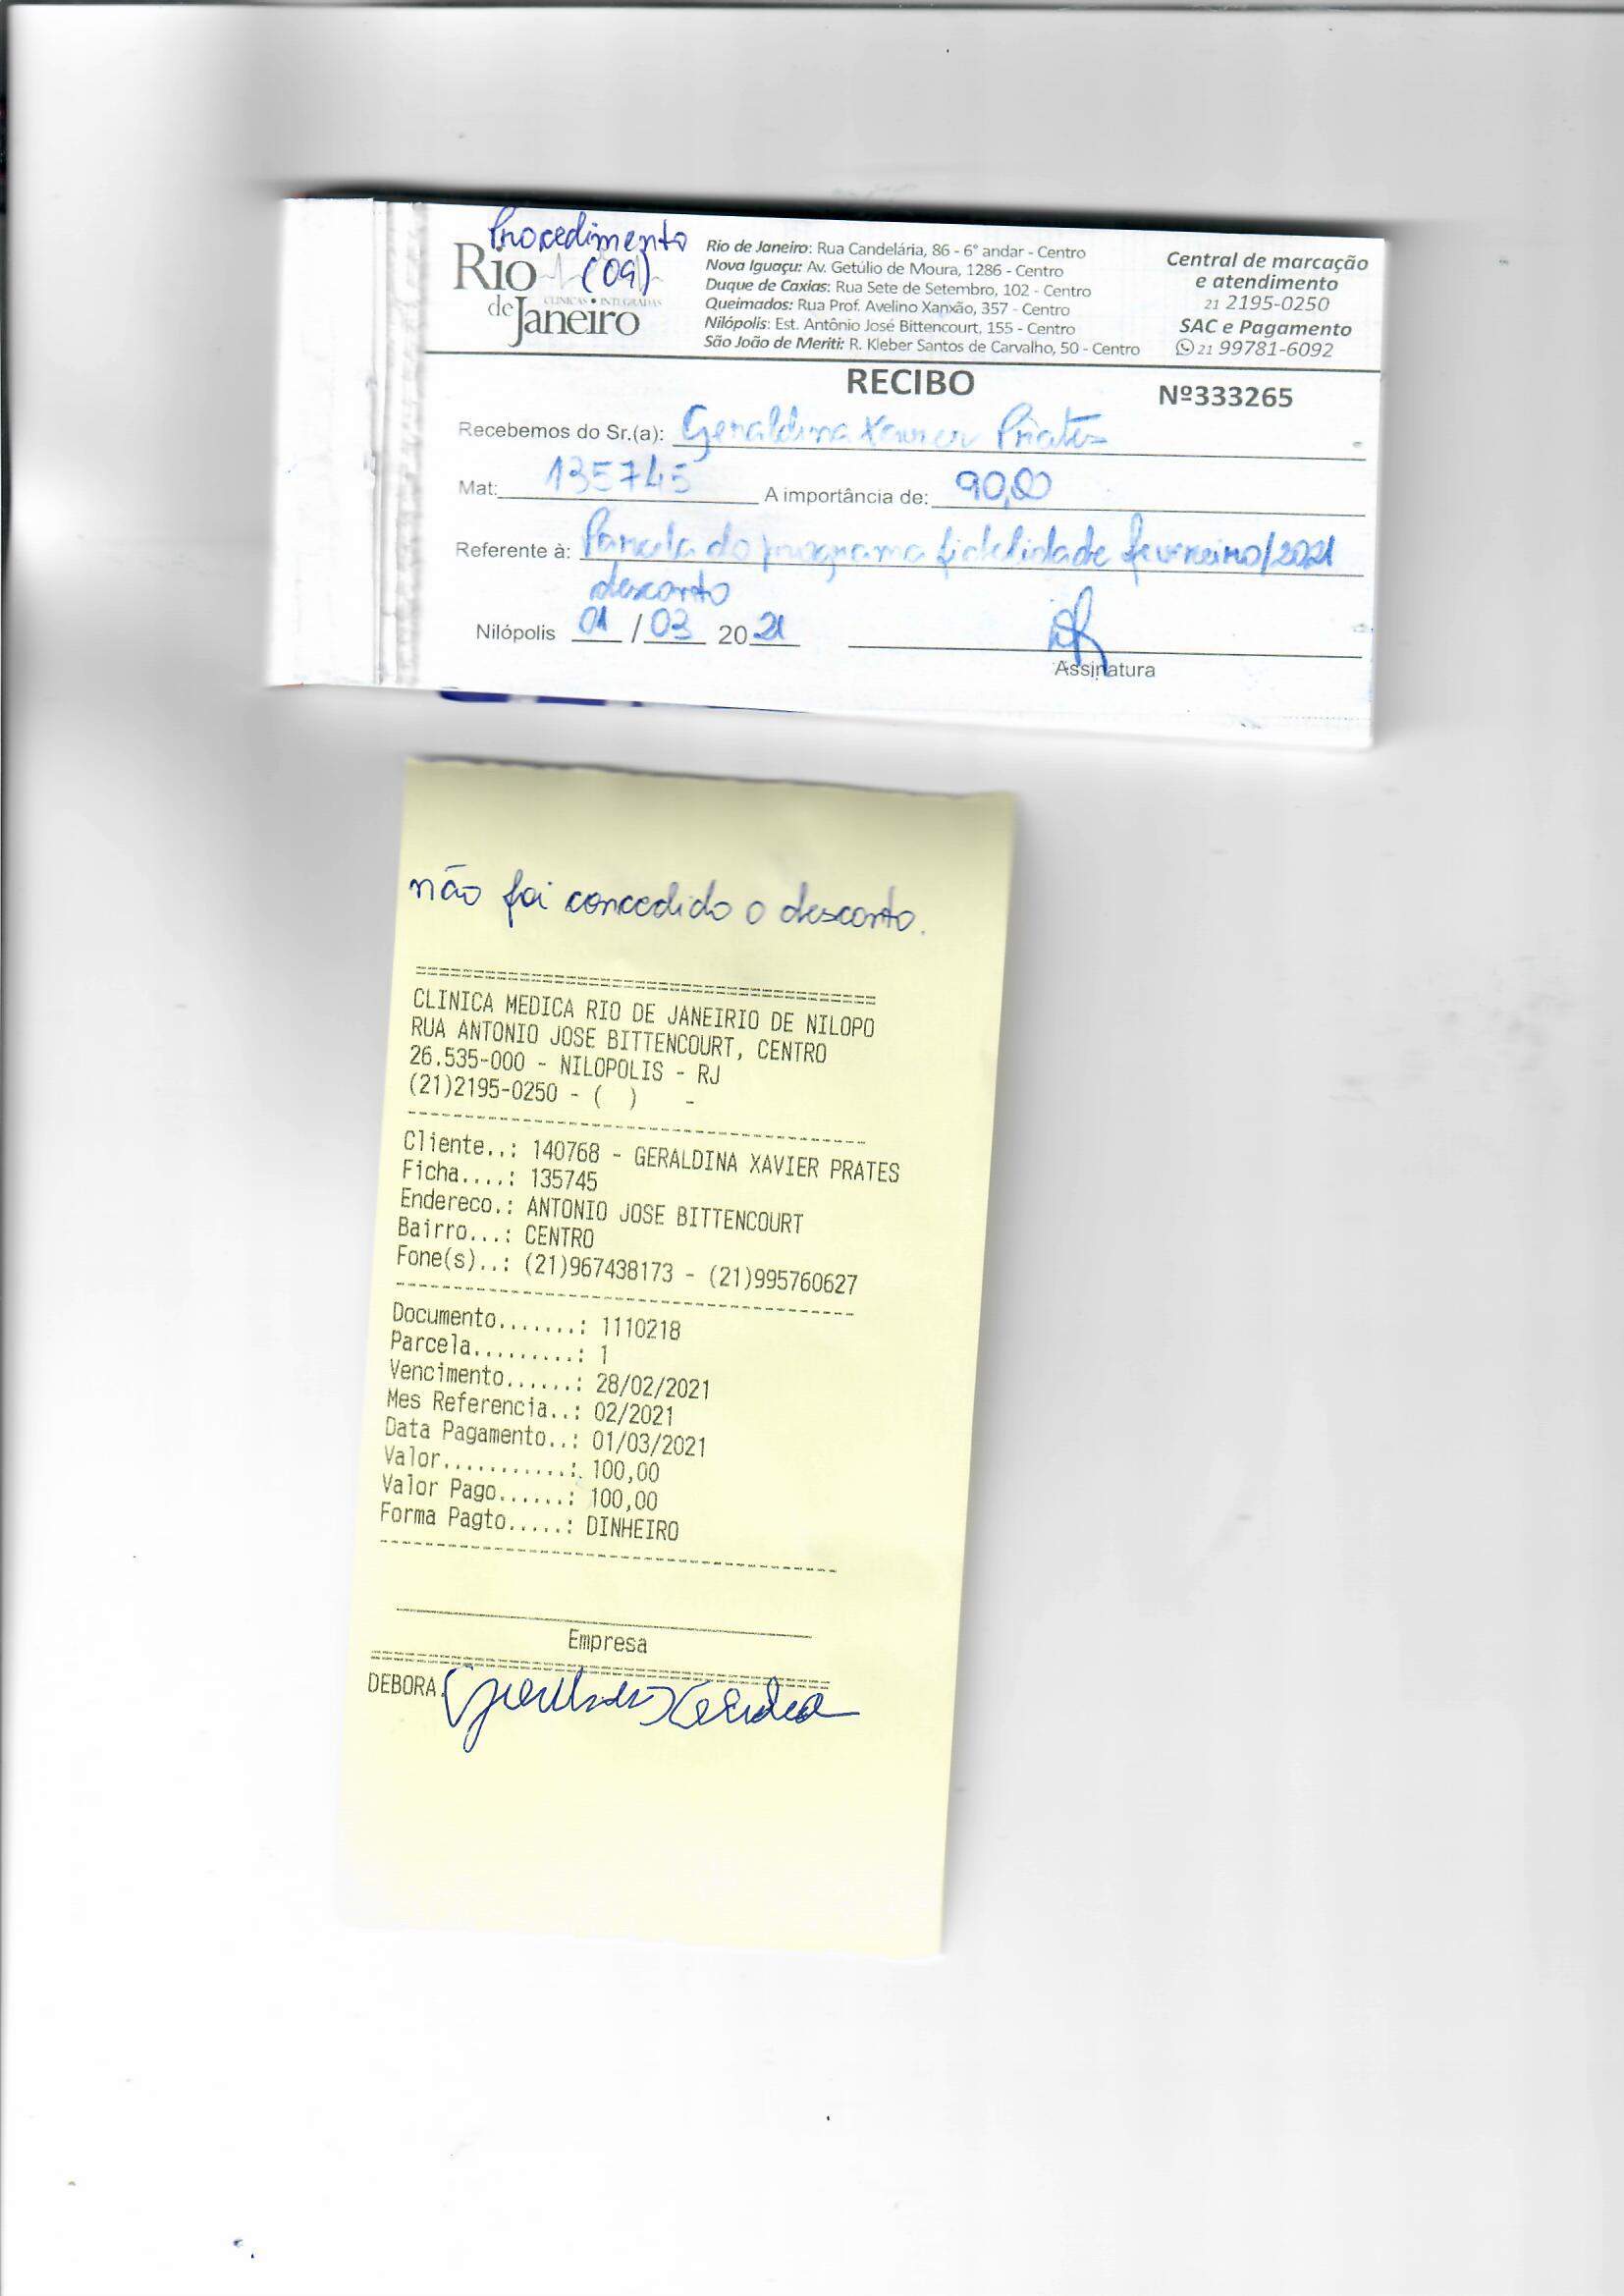 Procedimento
(09)
Rio
de Janeiro
CLÍNICAS • INTEGRADAS
Rio de Janeiro: Rua Candelária, 86 - 6° andar - Centro
Nova Iguaçu: Av. Getúlio de Moura, 1286 - Centro
Duque de Caxias: Rua Sete de Setembro, 102 - Centro
Queimados: Rua Prof. Avelino Xanxão, 357 - Centro
Nilópolis: Est. Antônio José Bittencourt, 155 - Centro
São João de Meriti: R. Kleber Santos de Carvalho, 50 - Centro
Central de marcação
e atendimento
21 2195-0250
SAC e Pagamento
21 99781-6092
RECIBO
Nº333265
Recebemos do Sr.(a): Geraldina Xavier Prates
Mat: 135745 A importância de: 90,00
Referente à: Parcela do programa fidelidade fevereiro/2021
desconto
Nilópolis 01 / 03 2021
Assinatura
não foi concedido o desconto.
CLINICA MEDICA RIO DE JANEIRIO DE NILOPO
RUA ANTONIO JOSE BITTENCOURT, CENTRO
26.535-000 - NILOPOLIS - RJ
(21)2195-0250 - ( ) -
Cliente..: 140768 - GERALDINA XAVIER PRATES
Ficha....: 135745
Endereco.: ANTONIO JOSE BITTENCOURT
Bairro...: CENTRO
Fone(s)..: (21)967438173 - (21)995760627
Documento.......: 1110218
Parcela.........: 1
Vencimento......: 28/02/2021
Mes Referencia..: 02/2021
Data Pagamento..: 01/03/2021
Valor...........: 100,00
Valor Pago......: 100,00
Forma Pagto.....: DINHEIRO
Empresa
DEBORA